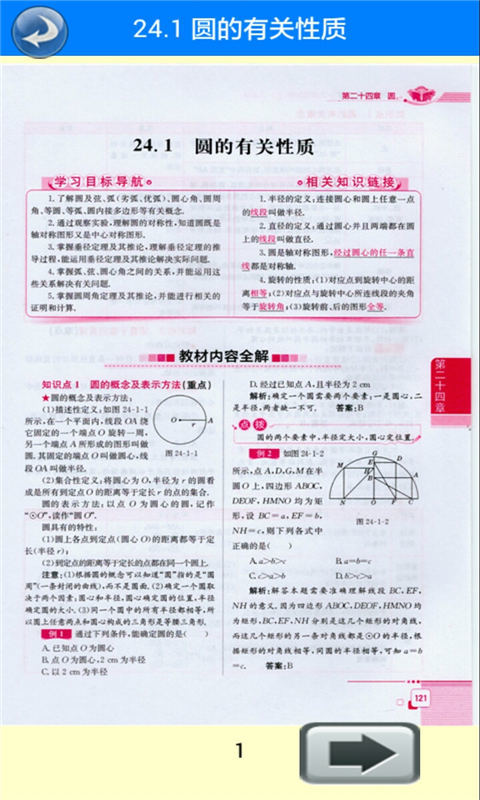 24.1 圆的有关性质
第二十四章 圆
24.1 圆的有关性质
学习目标导航
1.了解圆及弦、弧(劣弧、优弧)、圆心角、圆周
角、等圆、等弧、圆内接多边形等有关概念.
2.通过观察实验,理解圆的对称性,知道圆既是
轴对称图形又是中心对称图形.
3.掌握垂径定理及其推论,理解垂径定理的推
导过程,能运用垂径定理及其推论解决实际问题.
4.掌握弧、弦、圆心角之间的关系,并能运用这
些关系解决有关问题.
5.掌握圆周角定理及其推论,并能进行相关的
证明和计算.
相关知识链接
1.半径的定义:连接圆心和圆上任意一点
的线段叫做半径.
2.直径的定义:通过圆心并且两端都在圆
上的线段叫做直径.
3.圆是轴对称图形,经过圆心的任一条直
线都是对称轴.
4.旋转的性质:(1)对应点到旋转中心的距
离相等;(2)对应点与旋转中心所连线段的夹角
等于旋转角;(3)旋转前、后的图形全等.
教材内容全解
知识点1 圆的概念及表示方法(重点)
★圆的概念及表示方法:
(1)描述性定义:如图 24-1-1
所示,在一个平面内,线段 OA 绕
它固定的一个端点 O 旋转一周,
另一个端点 A 所形成的图形叫做
圆.其固定的端点 O 叫做圆心,线
段 OA 叫做半径.
O r A
图 24-1-1
(2)集合性定义:将圆心为 O,半径为 r 的圆看
成是所有到定点 O 的距离等于定长 r 的点的集合.
圆的表示方法:以点 O 为圆心的圆,记作
“⊙O”,读作“圆 O”.
圆具有的特性:
(1)圆上各点到定点(圆心 O)的距离都等于定
长(半径 r);
(2)到定点的距离等于定长的点都在同一个圆上.
注意:(1)根据圆的概念可以知道“圆”指的是“圆
周”(一条封闭的曲线),而不是圆面.(2)确定一个圆取
决于两个因素:圆心和半径,圆心确定圆的位置,半径
确定圆的大小.(3)同一个圆中的所有半径都相等,所
以圆上任意两点和圆心构成的三角形是等腰三角形.
例1 通过下列条件,能确定圆的是( )
A.已知点 O 为圆心
B.点 O 为圆心,2 cm 为半径
C.以 2 cm 为半径
D.经过已知点 A,且半径为 2 cm
解析:确定一个圆需要两个要素:一是圆心,二
是半径,两者缺一不可. 答案:B
点拨
圆的两个要素中,半径定大小,圆心定位置.
例2 如图 24-1-2
所示,点 A,D,G,M 在半
圆 O 上,四边形 ABOC,
DEOF,HMNO 均为矩
形,设 BC=a,EF=b,
NH=c,则下列各式中
正确的是( )
图 24-1-2
A.a>b>c B.a=b=c
C.c>a>b D.b>c>a
解析:解答本题需要准确理解线段 BC,EF,
NH 的意义.因为四边形 ABOC,DEOF,HMNO 均
为矩形,BC,EF,NH 分别是这几个矩形的对角线,
而这几个矩形的另一条对角线都是⊙O 的半径,根
据矩形的对角线相等,同圆的半径相等,可知 a=b
=c. 答案:B
第二十四章
121
1